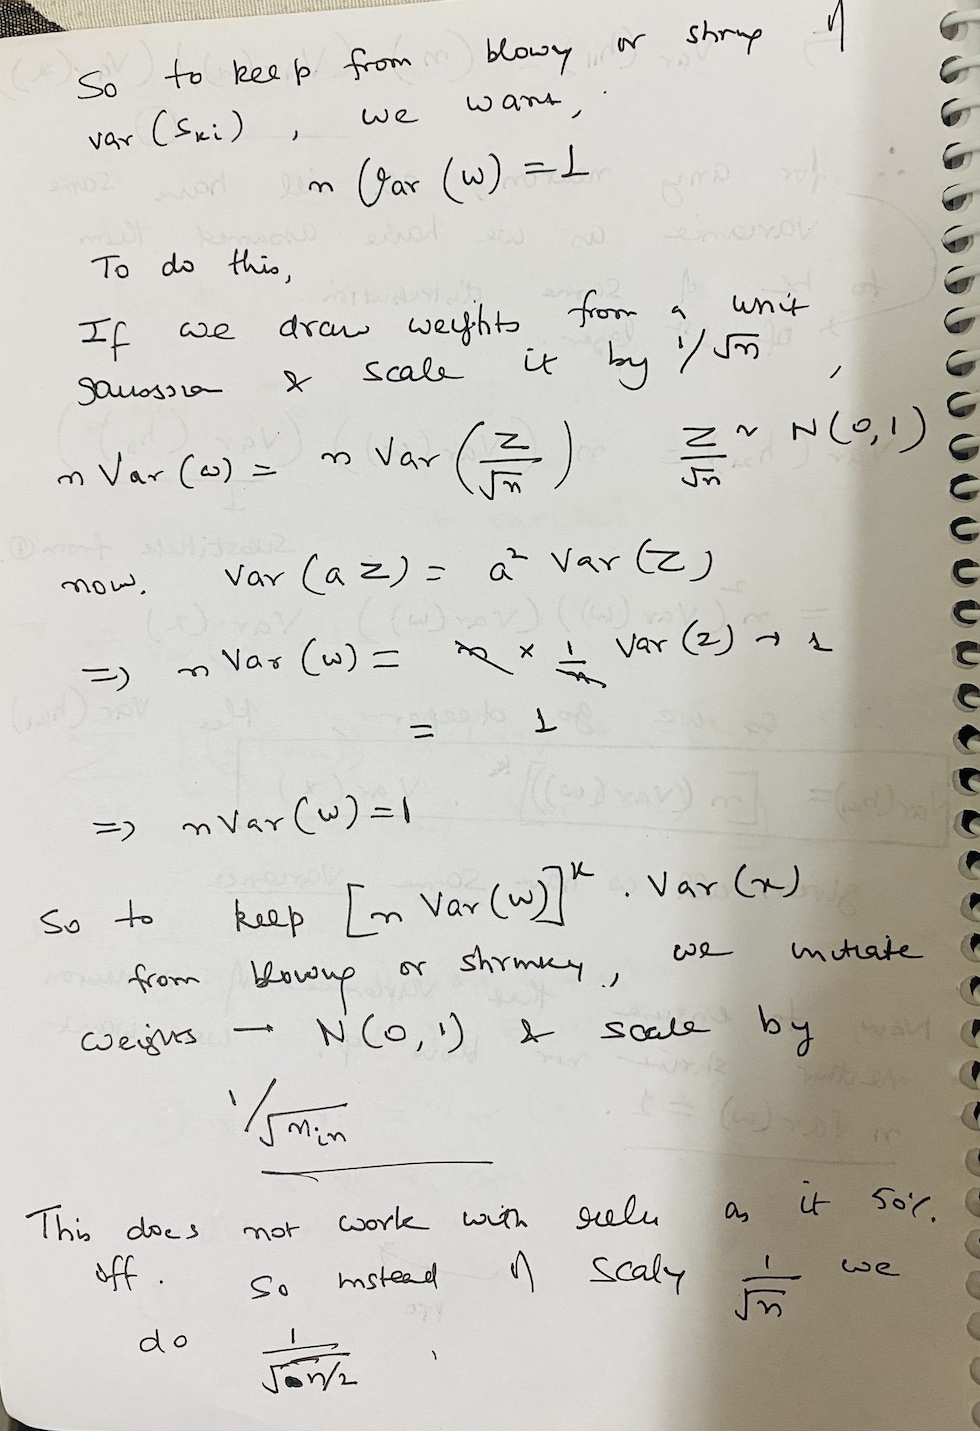 So to keep from blowy or shrup of
var (Ski) , we want,
n Var (w) = 1
To do this,
If we draw weights from a unit
gaussian & scale it by 1/√n ,
n Var (w) = n Var (z/√n) z/√n ~ N(0,1)
now. Var (a z) = a² Var (z)
=> n Var (w) = n × 1/n Var (z) → 1
= 1
=> n Var (w) = 1
So to keep [n Var (w)]^k . Var (x)
from blowup or shrinkey , we initiate
weights → N(0,1) & scale by
1/√n_in
This does not work with relu as it 50%
off . So instead of scaly 1/√n we
do 1/√n/2